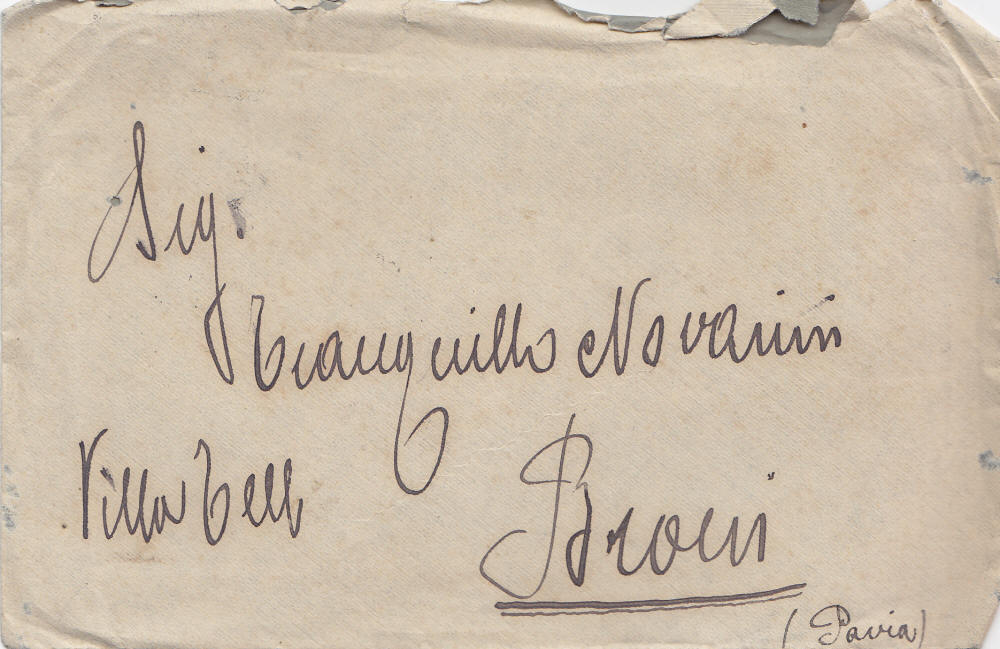 Sig.
Tranquillo Novarini
Villa Tell
Broni
(Pavia)